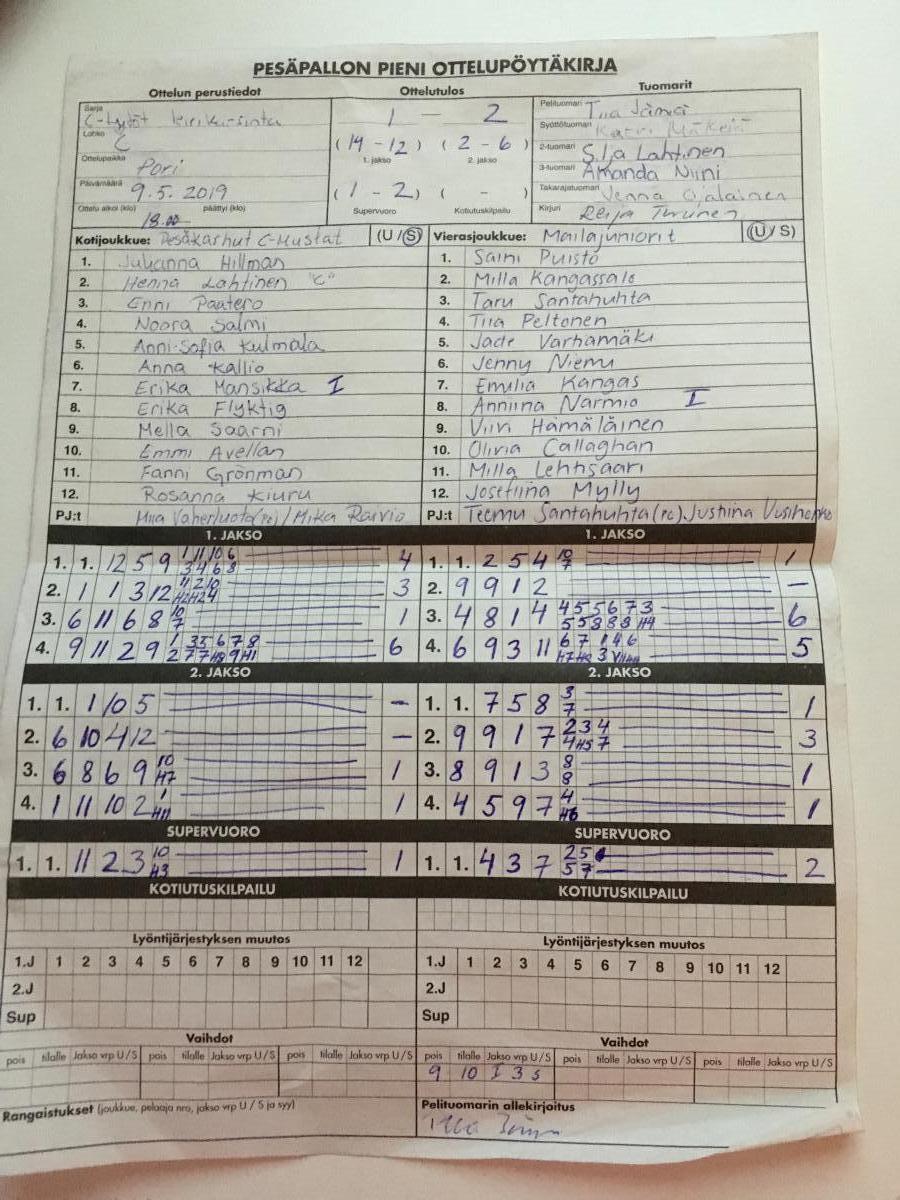 PESÄPALLON PIENI OTTELUPÖYTÄKIRJA
Ottelun perustiedot
Sarja
C-tytöt
Lohko
C
Ottelupaikka
Pori
Päivämäärä
9.5.2019
Ottelu alkoi (klo) 18.00 päättyi (klo)
Ottelutulos
1 – 2
(14 - 12) (2 - 6)
1. jakso 2. jakso
(1 - 2) ( - )
Supervuoro Kotiutuskilpailu
Tuomarit
Pelituomari Tiia
Syöttötuomari
2-tuomari Silja Lahtinen
3-tuomari Amanda Niini
Takarajatuomari Jenna Ojalainen
Kirjuri Reija Turunen
Kotijoukkue: Pesäkarhut C-Mustat (U/S)
1. Julianna Hillman
2. Henna Lahtinen "C"
3. Enni Paatero
4. Noora Salmi
5. Anni-Sofia Kulmala
6. Anna Kallio
7. Erika Mansikka I
8. Erika Flyktig
9. Mella Saarni
10. Emmi Avellan
11. Fanni Grönman
12. Rosanna Kiuru
PJ:t Miia Vaherluoto (pe) / Mika Raivio
Vierasjoukkue: Mailajuniorit (U/S)
1. Saini Puisto
2. Milla Kangassalo
3. Taru Santahuhta
4. Tiia Peltonen
5. Jade Varhamäki
6. Jenny Niemu
7. Emulia Kangas
8. Anniina Narmio I
9. Viivi Hämäläinen
10. Olivia Callaghan
11. Milla Lehtisaari
12. Josefiina Mylly
PJ:t Teemu Santahuhta (pe). Justiina
1. JAKSO
1. 1. 12 5 9 1 11 10 6 4
3 4 6 8
2. 1 1 3 12 11 2 10 3
H2 H2 4
3. 6 11 6 8 10 1
7
4. 9 11 2 9 1 3 5 6 7 8 6
2 7 7 H8 9 H1
1. JAKSO
1. 1. 2 5 4 10 1
7
2. 9 9 1 2 –
3. 4 8 1 4 4 5 5 6 7 3 6
5 5 8 8 8 H4
4. 6 9 3 11 6 7 1 4 6 5
2. JAKSO
1. 1. 1 10 5 –
2. 6 10 4 12 –
3. 6 8 6 9 10 1
H7
4. 1 11 10 2 1 1
H11
2. JAKSO
1. 1. 7 5 8 3 1
7
2. 9 9 1 7 2 3 4 3
4 H5 7
3. 8 9 1 3 8 1
8
4. 4 5 9 7 4 1
H6
SUPERVUORO
1. 1. 11 2 3 10 1
H3
SUPERVUORO
1. 1. 4 3 7 2 5 2
5 7
KOTIUTUSKILPAILU
KOTIUTUSKILPAILU
Lyöntijärjestyksen muutos
1.J 1 2 3 4 5 6 7 8 9 10 11 12
2.J
Sup
Lyöntijärjestyksen muutos
1.J 1 2 3 4 5 6 7 8 9 10 11 12
2.J
Sup
Vaihdot
pois tilalle Jakso vrp U/S pois tilalle Jakso vrp U/S pois tilalle Jakso vrp U/S
Vaihdot
pois tilalle Jakso vrp U/S pois tilalle Jakso vrp U/S pois tilalle Jakso vrp U/S
9 10 I 3 S
Rangaistukset (joukkue, pelaaja nro, jakso vrp U / S ja syy)
Pelituomarin allekirjoitus